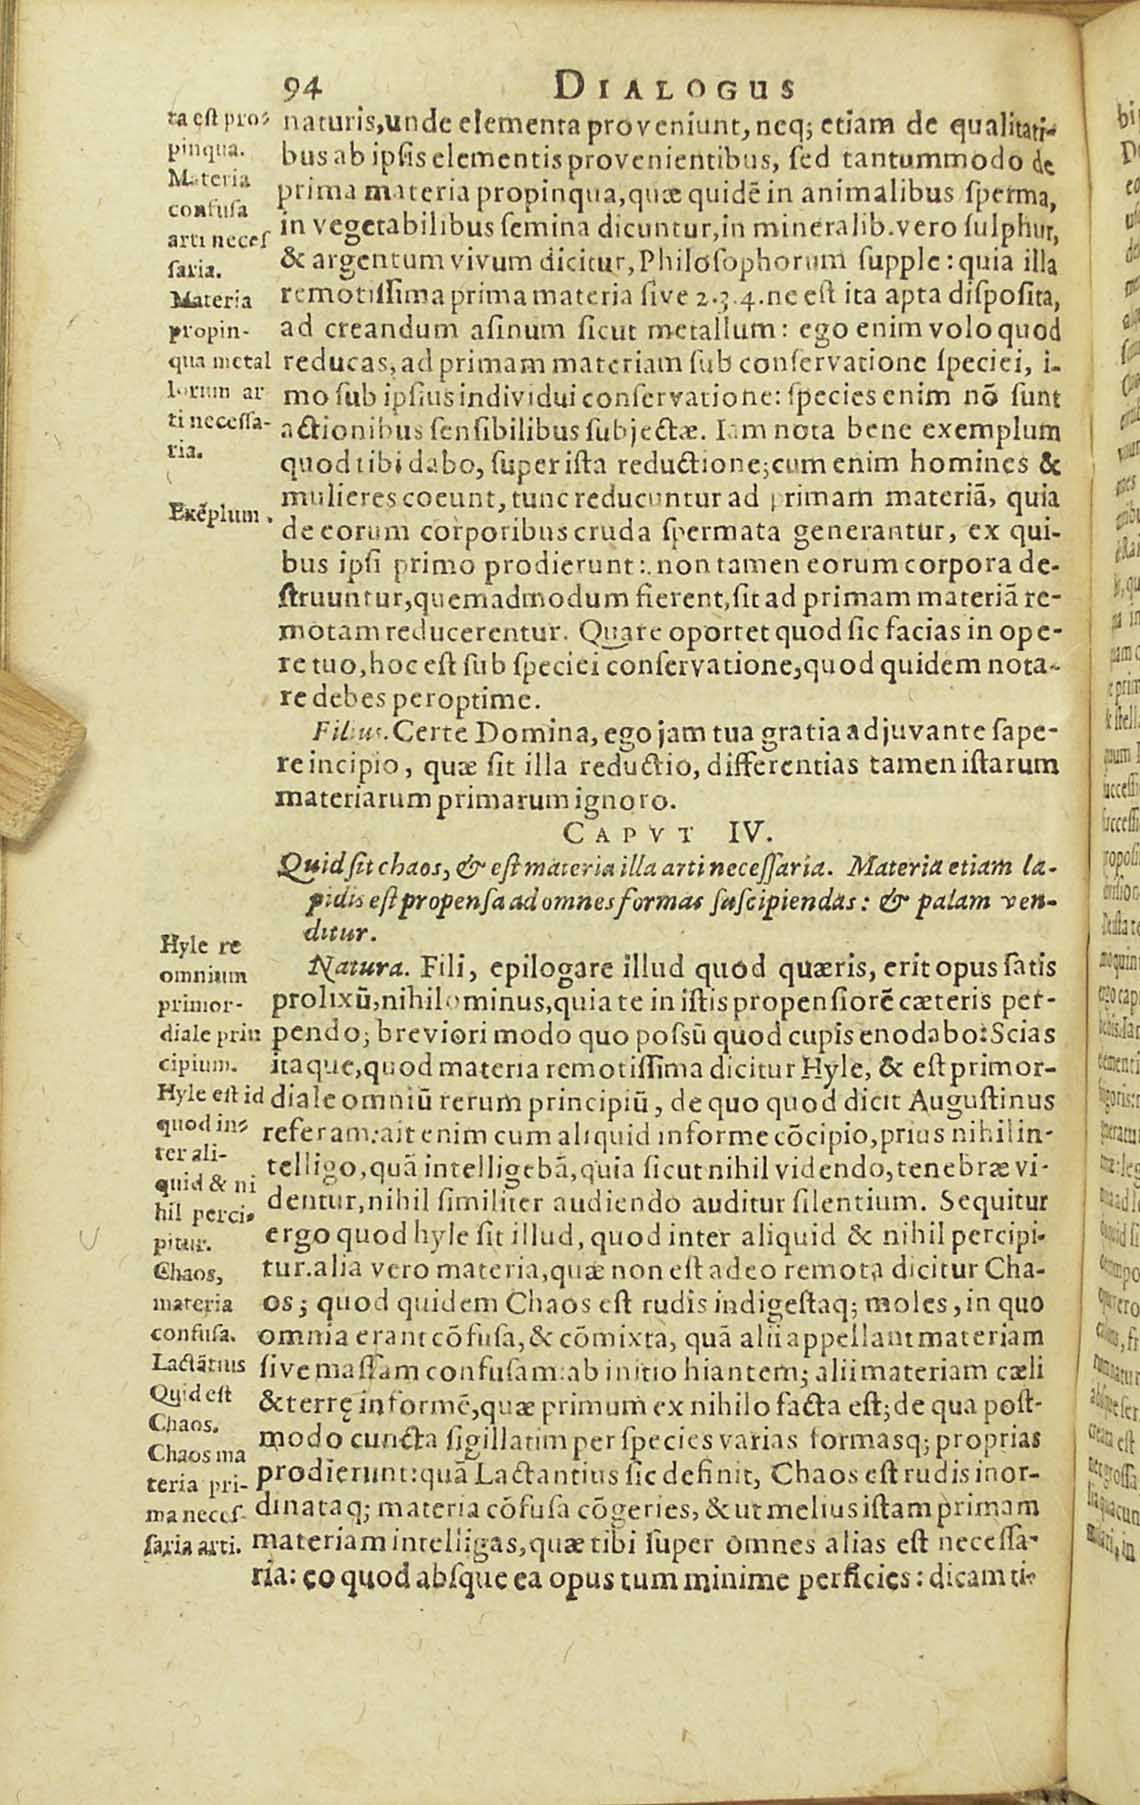 94 DIALOGUS
ta est pro-
pinqua.
Materia
confusa
arti neces
saria.
Materia
propin-
qua metal
lorum ar
ti necessa-
ria.
Exẽplum.
naturis, unde elementa proveniunt, neq; etiam de qualitati-
bus ab ipsis elementis provenientibus, sed tantummodo de
prima materia propinqua, quæ quidẽ in animalibus sperma,
in vegetabilibus semina dicuntur, in mineralib. vero sulphur,
& argentum vivum dicitur, Philosophorum supple: quia illa
remotissima prima materia sive 2.3.4. ne est ita apta disposita,
ad creandum asinum sicut metallum: ego enim volo quod
reducas, ad primam materiam sub conservatione speciei, i-
mo sub ipsius individui conservatione: species enim nõ sunt
actionibus sensibilibus subjectæ. Iam nota bene exemplum
quod tibi dabo, super ista reductione; cum enim homines &
mulieres coeunt, tunc reducuntur ad primam materiã, quia
de eorum corporibus cruda spermata generantur, ex qui-
bus ipsi primo prodierunt: non tamen eorum corpora de-
struuntur, quemadmodum fierent, sit ad primam materiã re-
motam reducerentur. Quare oportet quod sic facias in ope-
re tuo, hoc est sub speciei conservatione, quod quidem nota-
re debes peroptime.
Filius. Certe Domina, ego jam tua gratia adjuvante sape-
re incipio, quæ sit illa reductio, differentias tamen istarum
materiarum primarum ignoro.
CAPVT IV.
Quid sit chaos, & est materia illa arti necessaria. Materia etiam la-
pidis est propensa ad omnes formas suscipiendas: & palam ven-
ditur.
Hyle re
omnium
primor-
diale prin
cipium.
Hyle est id
quod in-
ter ali-
quid & ni
hil perci-
pitur.
Chaos,
materia
confusa.
Lactãtius
Quid est
Chaos.
Chaos ma
teria pri-
ma neces-
saria arti.
Natura. Fili, epilogare illud quod quæris, erit opus satis
prolixũ, nihilominus, quia te in istis propensiorẽ cæteris per-
pendo; breviori modo quo possũ quod cupis enodabo: Scias
itaque, quod materia remotissima dicitur Hyle, & est primor-
diale omniũ rerum principiũ, de quo quod dicit Augustinus
referam: ait enim cum aliquid informe cõcipio, prius nihil in-
telligo, quã intelligebã, quia sicut nihil videndo, tenebræ vi-
dentur, nihil similiter audiendo auditur silentium. Sequitur
ergo quod hyle sit illud, quod inter aliquid & nihil percipi-
tur. alia vero materia, quæ non est adeo remota dicitur Cha-
os; quod quidem Chaos est rudis indigestaq; moles, in quo
omnia erant cõfusa, & cõmixta, quã alii appellant materiam
sive massam confusam: ab initio hiantem; alii materiam cæli
& terrę informẽ, quæ primum ex nihilo facta est; de qua post-
modo cuncta sigillatim per species varias formasq; proprias
prodierunt: quã Lactantius sic definit, Chaos est rudis inor-
dinataq; materia cõfusa cõgeries, & ut melius istam primam
materiam intelligas, quæ tibi super omnes alias est necessa-
ria: eo quod absque ea opus tum minime perficies: dicam ti-